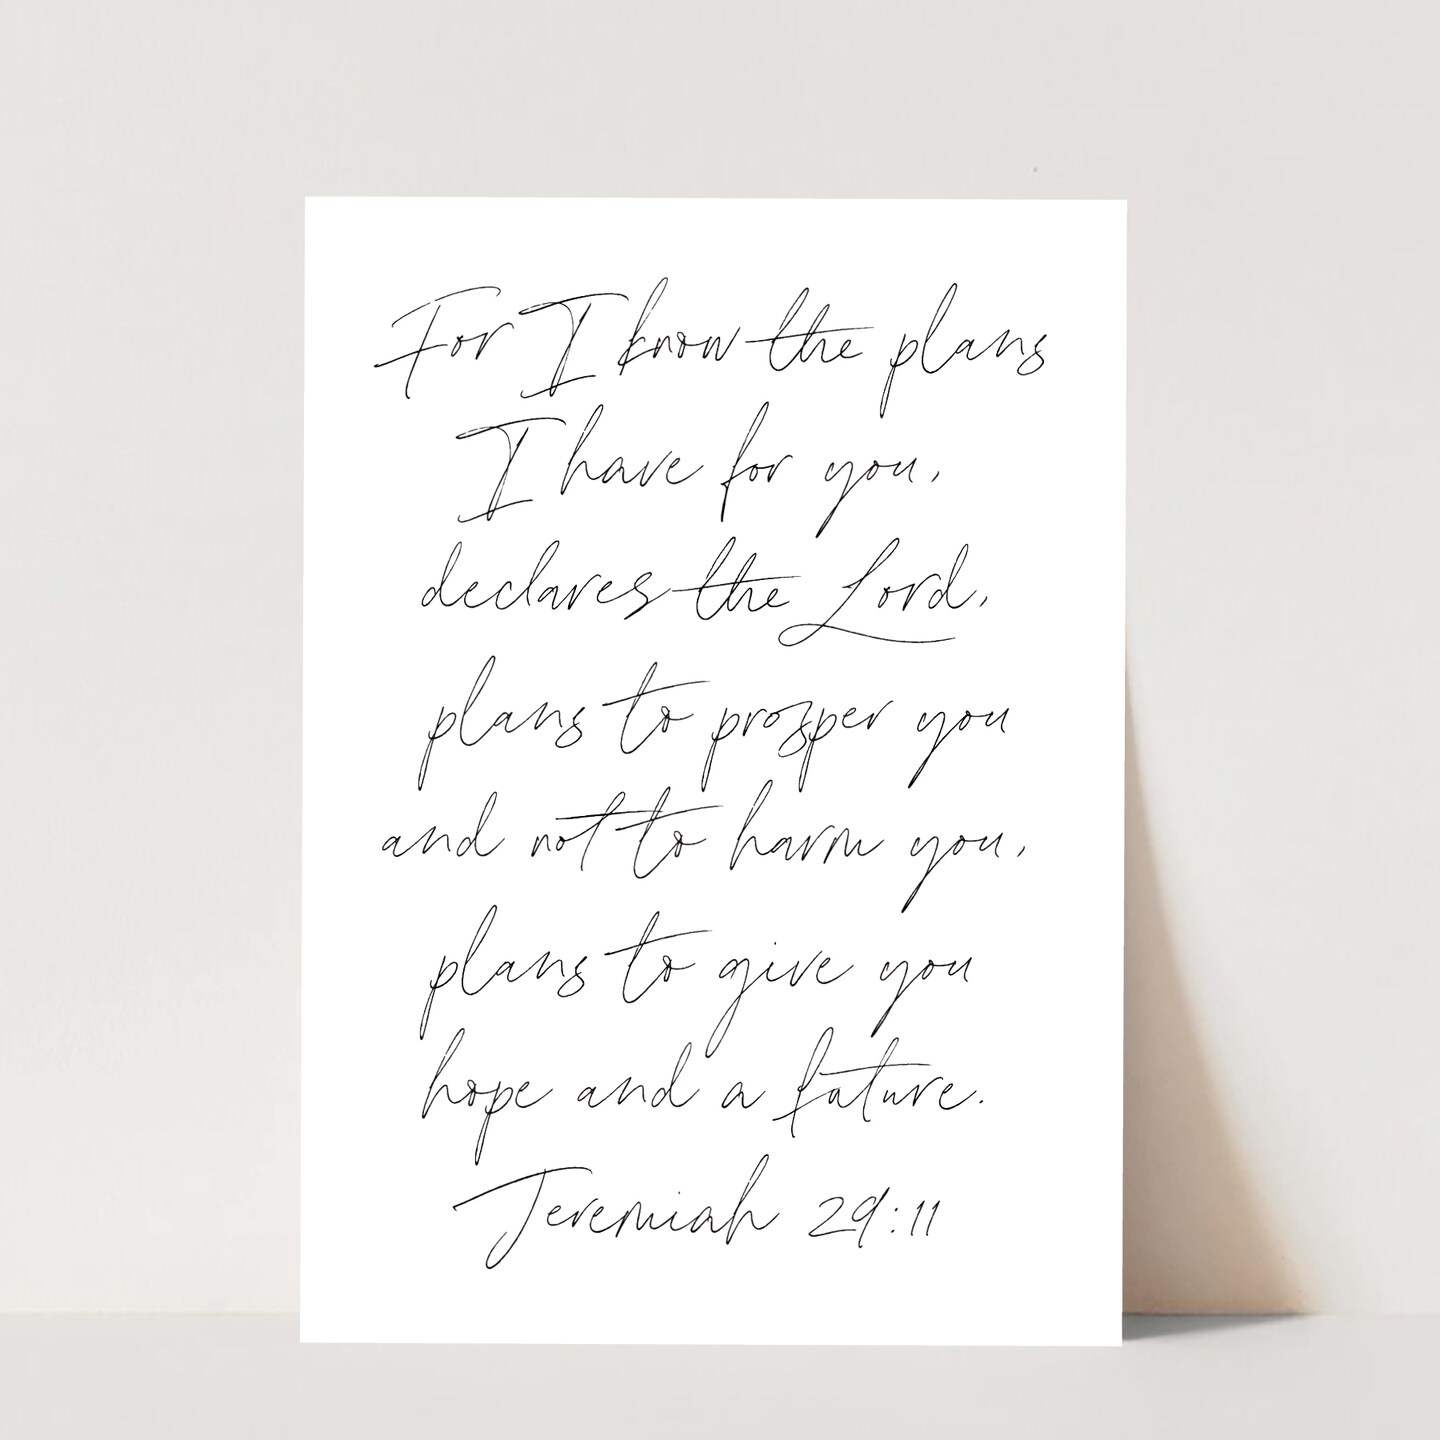 For I know the plans
I have for you,
declares the Lord,
plans to prosper you
and not to harm you,
plans to give you
hope and a future.
Jeremiah 29:11